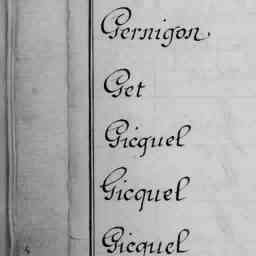 Gernigon
Get
Gicquel
Gicquel
Gicquel